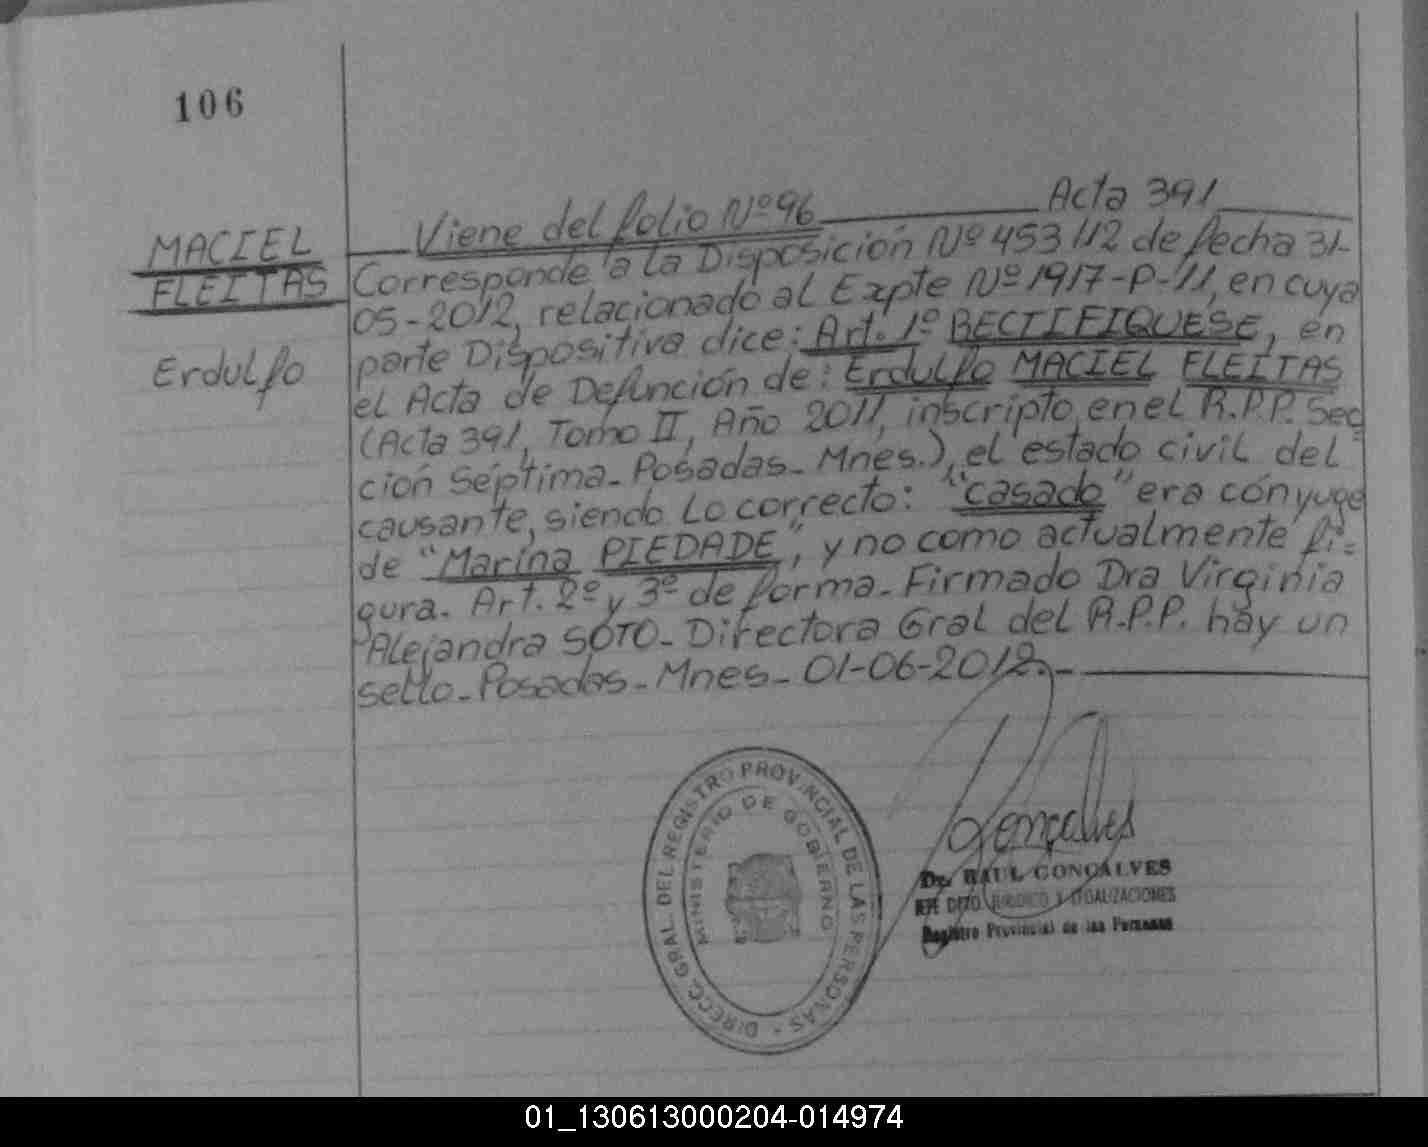 106
MACIEL
FLEITAS
Erdulfo
Viene del folio Nº 96 Acta 391
Corresponde a la Disposición Nº 453/12 de fecha 31-
05-2012, relacionado al Expte Nº 1917-P-11, en cuya
parte Dispositiva dice: Art. 1º RECTIFIQUESE, en
el Acta de Defunción de: Erdulfo MACIEL FLEITAS
(Acta 391, Tomo II, Año 2011, inscripto en el R.P.P. Sec
ción Séptima - Posadas - Mnes.), el estado civil del
causante, siendo lo correcto: "casado" era cónyuge
de "Marina PIEDADE", y no como actualmente fi=
gura. Art. 2º y 3º de forma - Firmado Dra Virginia
Alejandra SOTO - Directora Gral del R.P.P. hay un
sello - Posadas - Mnes - 01-06-2012.-
DIRECC. GRAL. DEL REGISTRO PROVINCIAL DE LAS PERSONAS -
MINISTERIO DE GOBIERNO
Gonçalves
Dr. RAUL GONÇALVES
JEFE DPTO. JURIDICO Y LEGALIZACIONES
Registro Provincial de las Personas
01_130613000204-014974